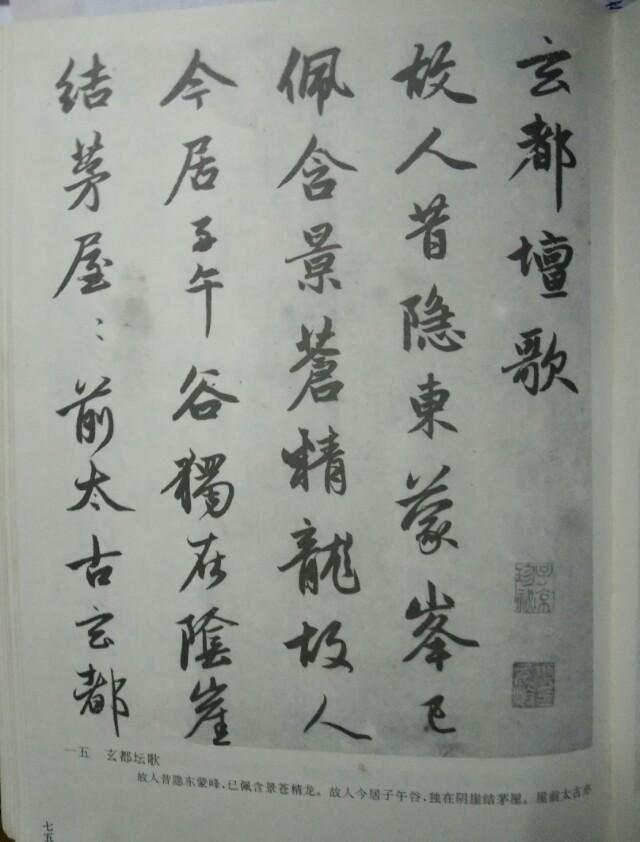 玄都壇歌
故人昔隐東蒙峯已
佩含景蒼精龍故人
今居子午谷獨在陰崖
结茅屋〻前太古玄都
一五 玄都坛歌
故人昔隐东蒙峰，已佩含景苍精龙。故人今居子午谷，独在阴崖结茅屋。屋前太古
七五